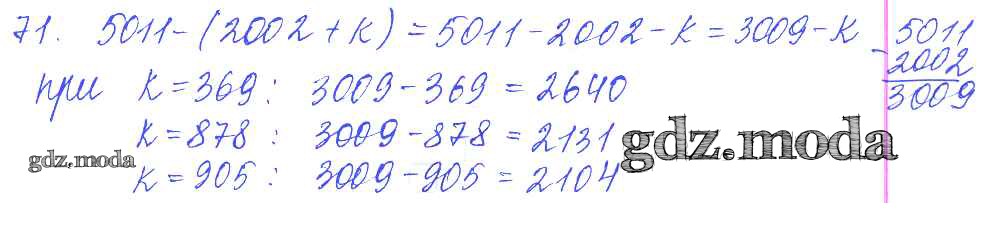 71. 5011-(2002+к)=5011-2002-к=3009-к
при к=369: 3009-369=2640
к=878: 3009-878=2131
к=905: 3009-905=2104
5011
-2002
3009
gdz.moda
gdz.moda